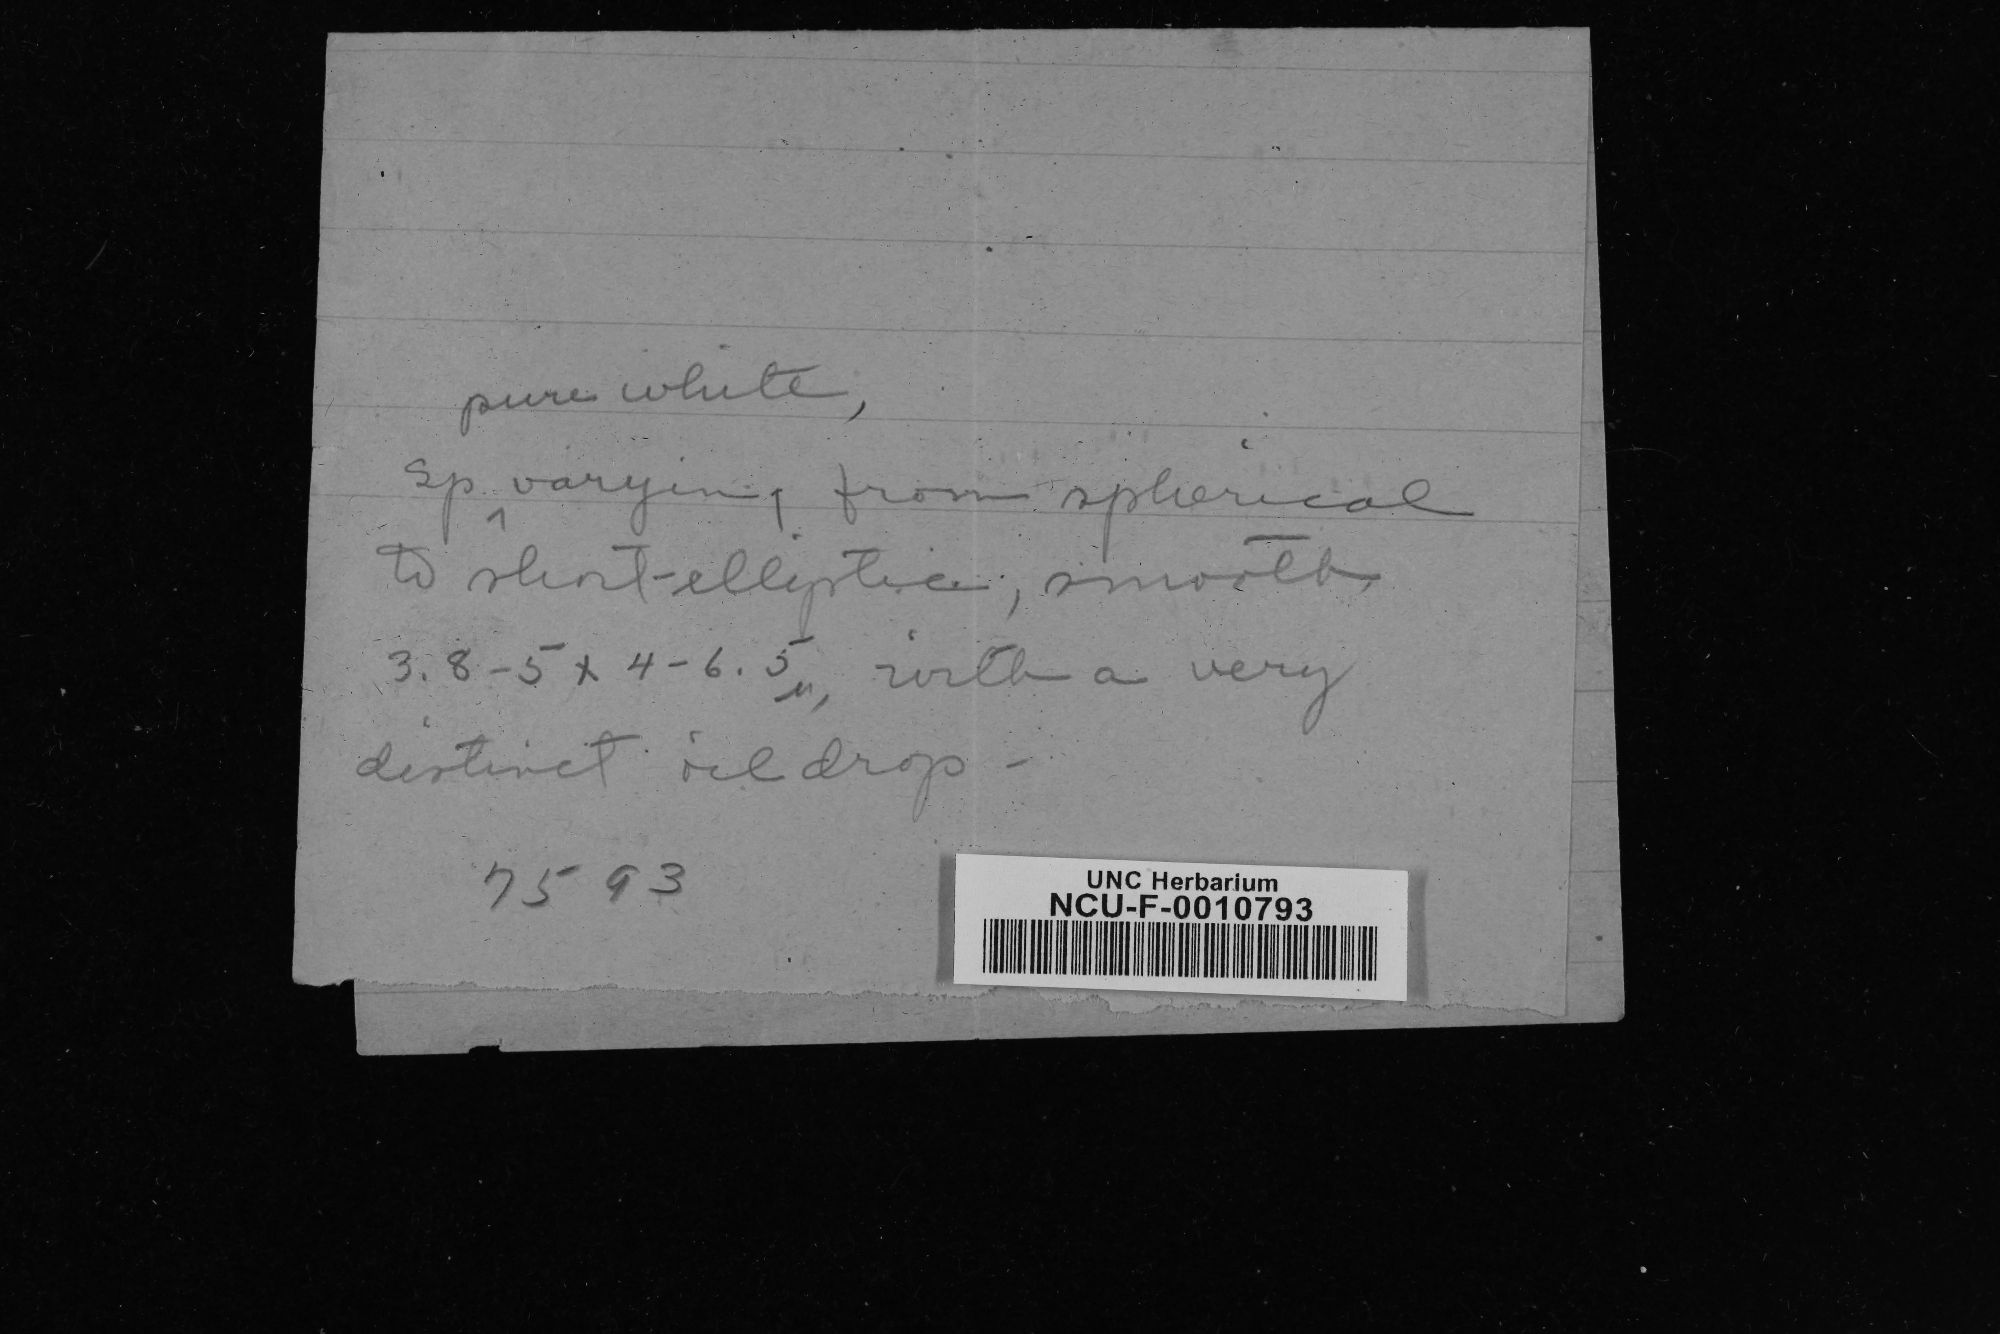 pure white,
Sp. ^ varying from spherical
to short-elliptic, smooth,
3.8-5 x 4-6.5 µ, with a very
distinct oil drop -
7593
UNC Herbarium
NCU-F-0010793